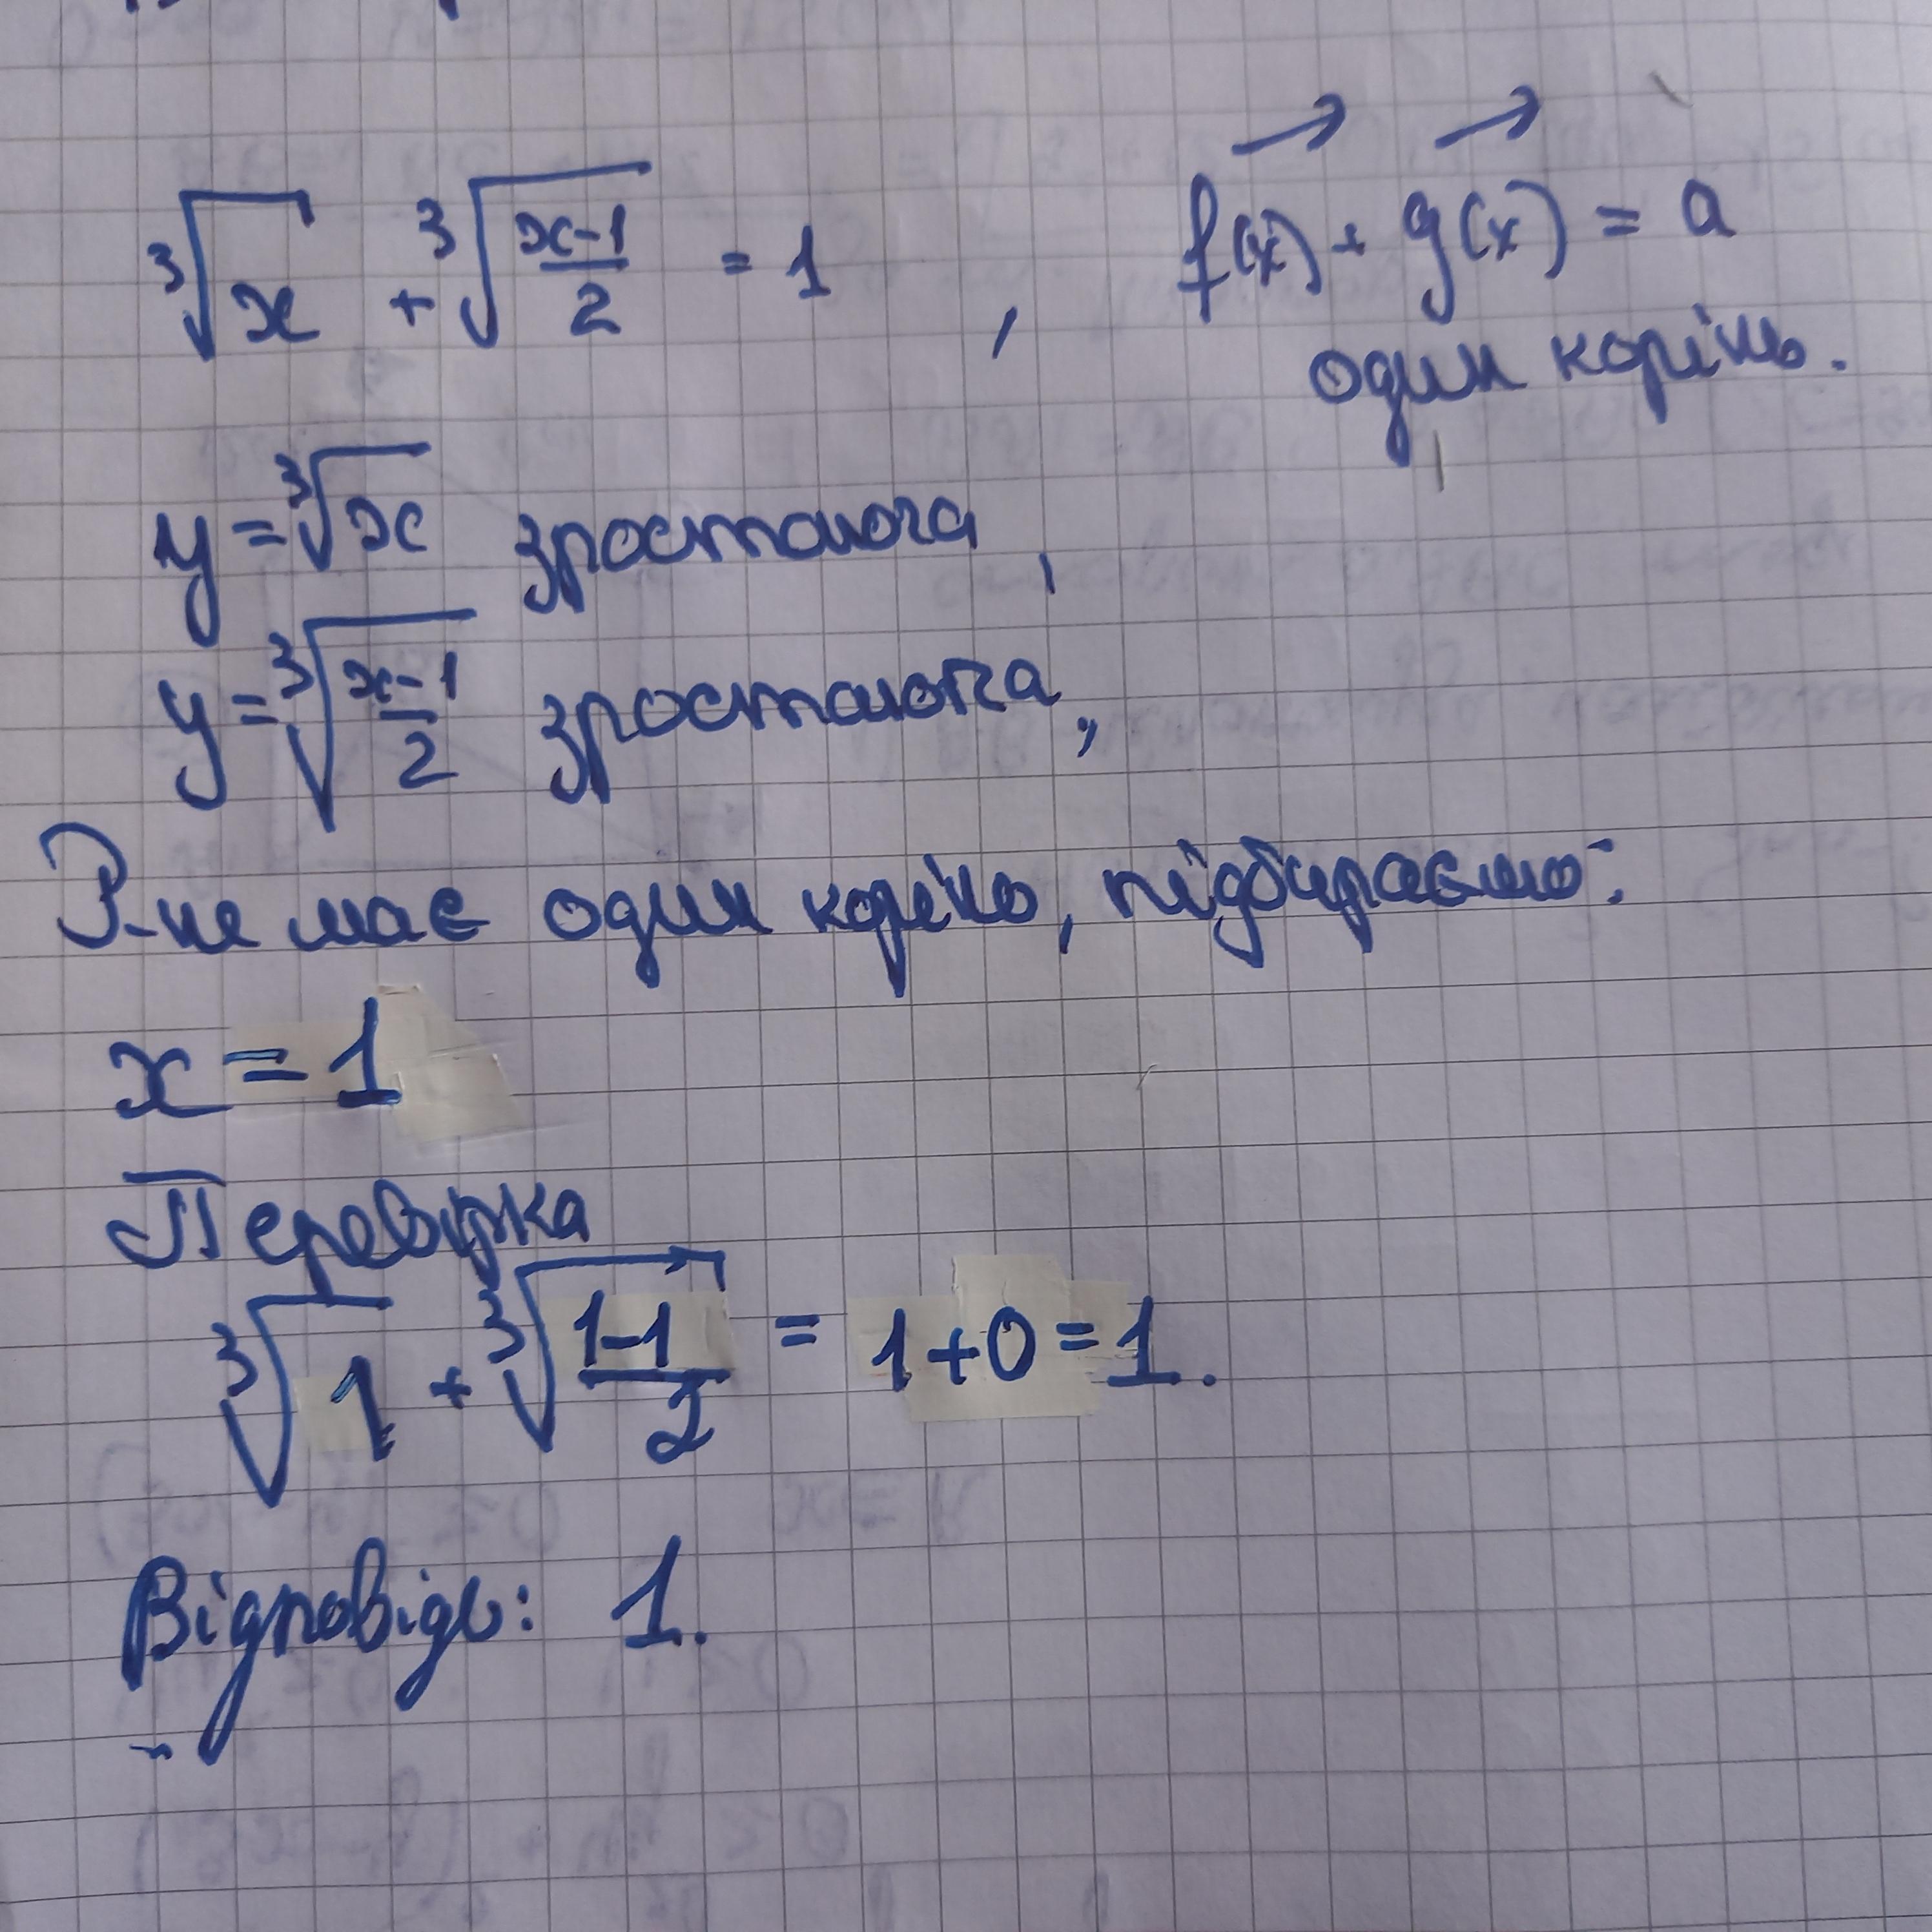 ∛x + ∛((x-1)/2) = 1 , f(x) + g(x) = a
один корінь.
y = ∛x зростаюча,
y = ∛((x-1)/2) зростаюча,
Р-не має один корінь, підбираємо:
x = 1
Перевірка
∛1 + ∛((1-1)/2) = 1+0=1.
Відповідь: 1.